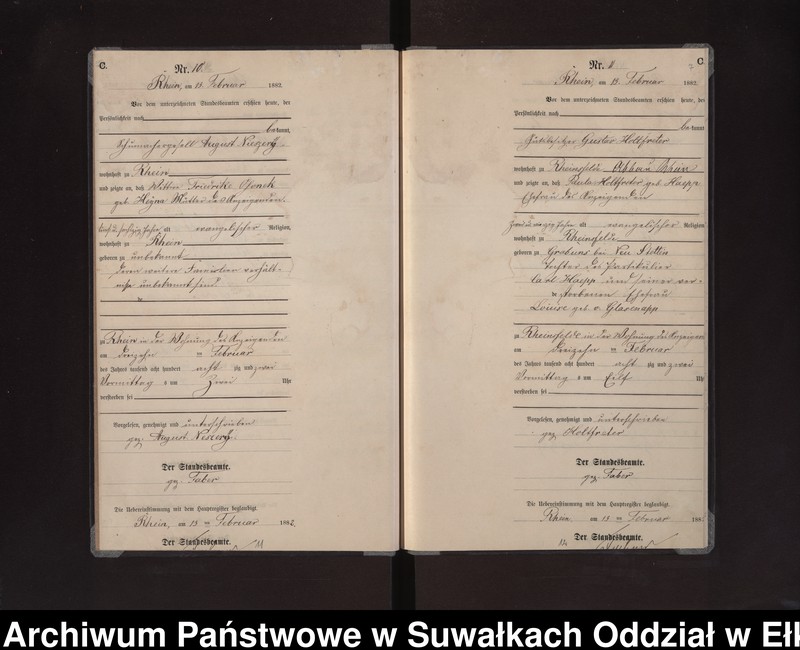 C.
Nr. 10.
Rhein, am 13 Februar 1882.
Vor dem unterzeichneten Standesbeamten erschien heute, der
Persönlichkeit nach
bekannt,
Schuhmachergesell August
wohnhaft zu Rhein
und zeigte an, daß Wittwe Friedrike
geb. Heyna Mutter des Anzeigenden.
evangelischer Religion,
wohnhaft zu Rhein
geboren zu unbekannt
deren weitere Familien verhält-
nisse unbekannt sind.
zu Rhein in der Wohnung des Anzeigenden
am dreizehn ten Februar
des Jahres tausend acht hundert acht zig und zwei
Vormittag s um zwei Uhr
verstorben sei
Vorgelesen, genehmigt und unterschrieben
gez. August
Der Standesbeamte.
gez. Faber
Die Uebereinstimmung mit dem Hauptregister beglaubigt
Rhein, am 13 ten Februar 1882.
Der Standesbeamte.
C
Nr. 11
Rhein, am 13. Februar 1882.
Vor dem unterzeichneten Standesbeamten erschien heute, der
Persönlichkeit nach
bekannt
Gutsbesitzer Gustav Holtfreter
wohnhaft zu Rheinsfelde Rhein
und zeigte an, daß Paula Holtfreter geb. Haepp
Ehefrau des Anzeigenden
evangelischer Religion,
wohnhaft zu Rheinsfelde
geboren zu bei Neu Stettin
Tochter des Partikulier
Carl Haepp und seiner ver-
storbenen Ehefrau
Louise geb. v. Glasenapp
zu Rheinsfelde in der Wohnung des Anzeigen
am dreizehn ten Februar
des Jahres tausend acht hundert acht zig und zwei
Vormittag s um Eilf Uhr
verstorben sei
Vorgelesen, genehmigt und unterschrieben
gez. Holtfreter
Der Standesbeamte.
gez. Faber
Die Uebereinstimmung mit dem Hauptregister beglaubigt
Rhein, am 13 ten Februar 188
Der Standesbeamte.
Archiwum Państwowe w Suwałkach Oddział w Ełk